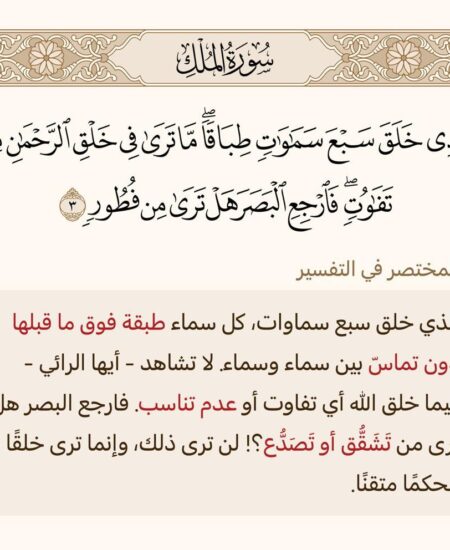 سُورَةُ المُلْكِ
خَلَقَ سَبْعَ سَمَٰوَٰتٖ طِبَاقٗاۖ مَّا تَرَىٰ فِي خَلْقِ ٱلرَّحْمَٰنِ
تَفَٰوُتٖۖ فَٱرْجِعِ ٱلْبَصَرَ هَلْ تَرَىٰ مِن فُطُورٖ ٣
لمختصر في التفسير
لذي خلق سبع سماوات، كل سماء طبقة فوق ما قبلها
ون تماسّ بين سماء وسماء. لا تشاهد - أيها الرائي -
يما خلق الله أي تفاوت أو عدم تناسب. فارجع البصر هل
رى من تَشَقُّق أو تَصَدُّع؟! لن ترى ذلك، وإنما ترى خلقًا
حكمًا متقنًا.